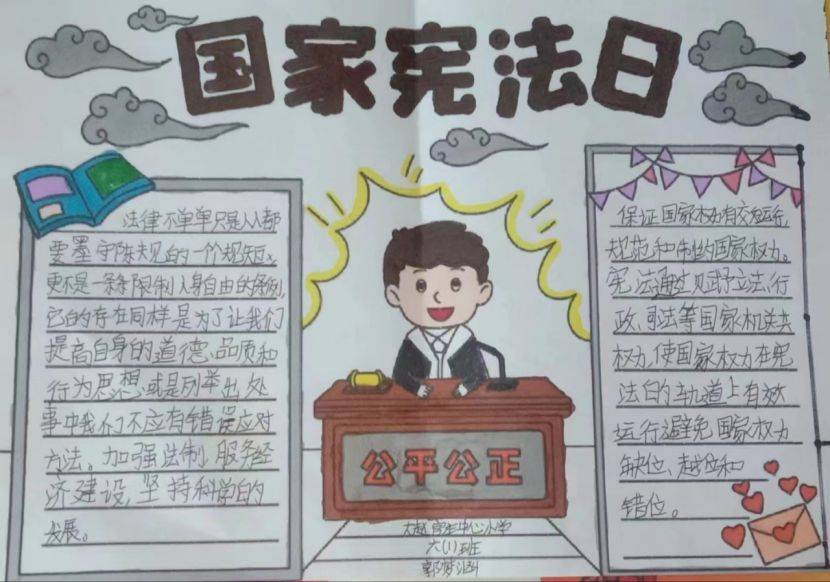 国家宪法日
法律不单单只是人人都
要墨守陈规的一个规矩,
更不是一条条限制人身自由的条例,
它的存在同样是为了让我们
提高自身的道德、品质和
行为思想,或是列举出处
事中我们不应有错误应对
方法。加强法制,服务经
济建设,坚持科学的
发展。
公平公正
保证国家权力有交运行,
规范和制约国家权力。
宪法通过赋予立法、行
政、司法等国家机关共
权力,使国家权力在宪
法的轨道上有效
运行避免国家权力
缺位、越位和
错位。
中心小学
六(1)班